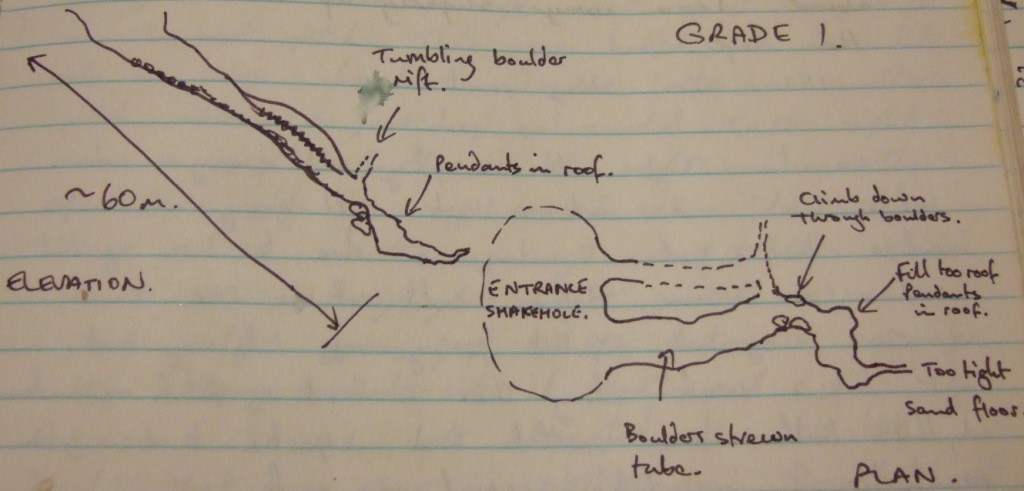 GRADE 1.
Tumbling boulder
rift.
Pendants in roof.
~60m.
ELEVATION.
ENTRANCE
SHAKEHOLE.
Climb down
through boulders.
Fill too roof
Pendants
in roof.
Too tight
Sand floor.
Boulder strewn
tube.
PLAN.